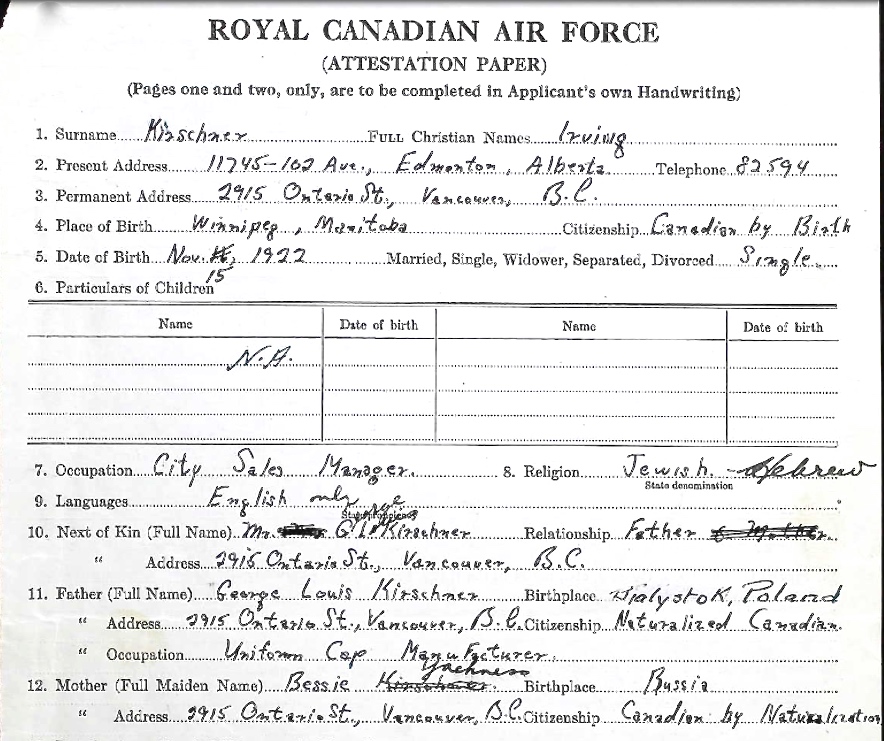 ROYAL CANADIAN AIR FORCE
(ATTESTATION PAPER)
(Pages one and two, only, are to be completed in Applicant's own Handwriting)
1. Surname Kirschner FULL Christian Names Irving
2. Present Address 11745-102 Ave., Edmonton, Alberta Telephone 82594
3. Permanent Address 2915 Ontario St., Vancouver, B.C.
4. Place of Birth Winnipeg, Manitoba Citizenship Canadian by Birth
5. Date of Birth Nov. 15, 1922 Married, Single, Widower, Separated, Divorced Single
6. Particulars of Children
Name Date of birth Name Date of birth
N.A.
7. Occupation City Sales Manager. 8. Religion Jewish - Hebrew
State denomination
9. Languages English only
10. Next of Kin (Full Name) Mr. George L. Kirschner Relationship Father
" Address 2915 Ontario St., Vancouver, B.C.
11. Father (Full Name) George Louis Kirschner Birthplace Bialystok, Poland
" Address 2915 Ontario St., Vancouver, B.C. Citizenship Naturalized Canadian.
" Occupation Uniform Cap Manufacturer.
12. Mother (Full Maiden Name) Bessie Birthplace Russia
" Address 2915 Ontario St., Vancouver, B.C. Citizenship Canadian by Naturalization